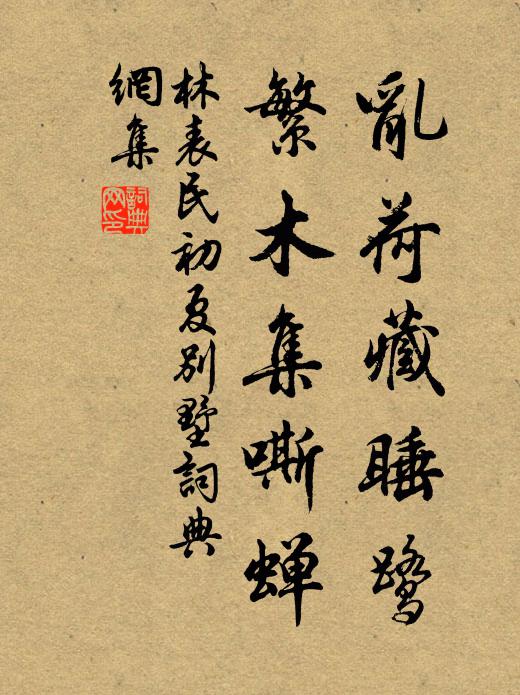 亂荷藏睡鷺
繁木集嘶蝉
林表民初夏別墅詞典
網集
詞典
网印